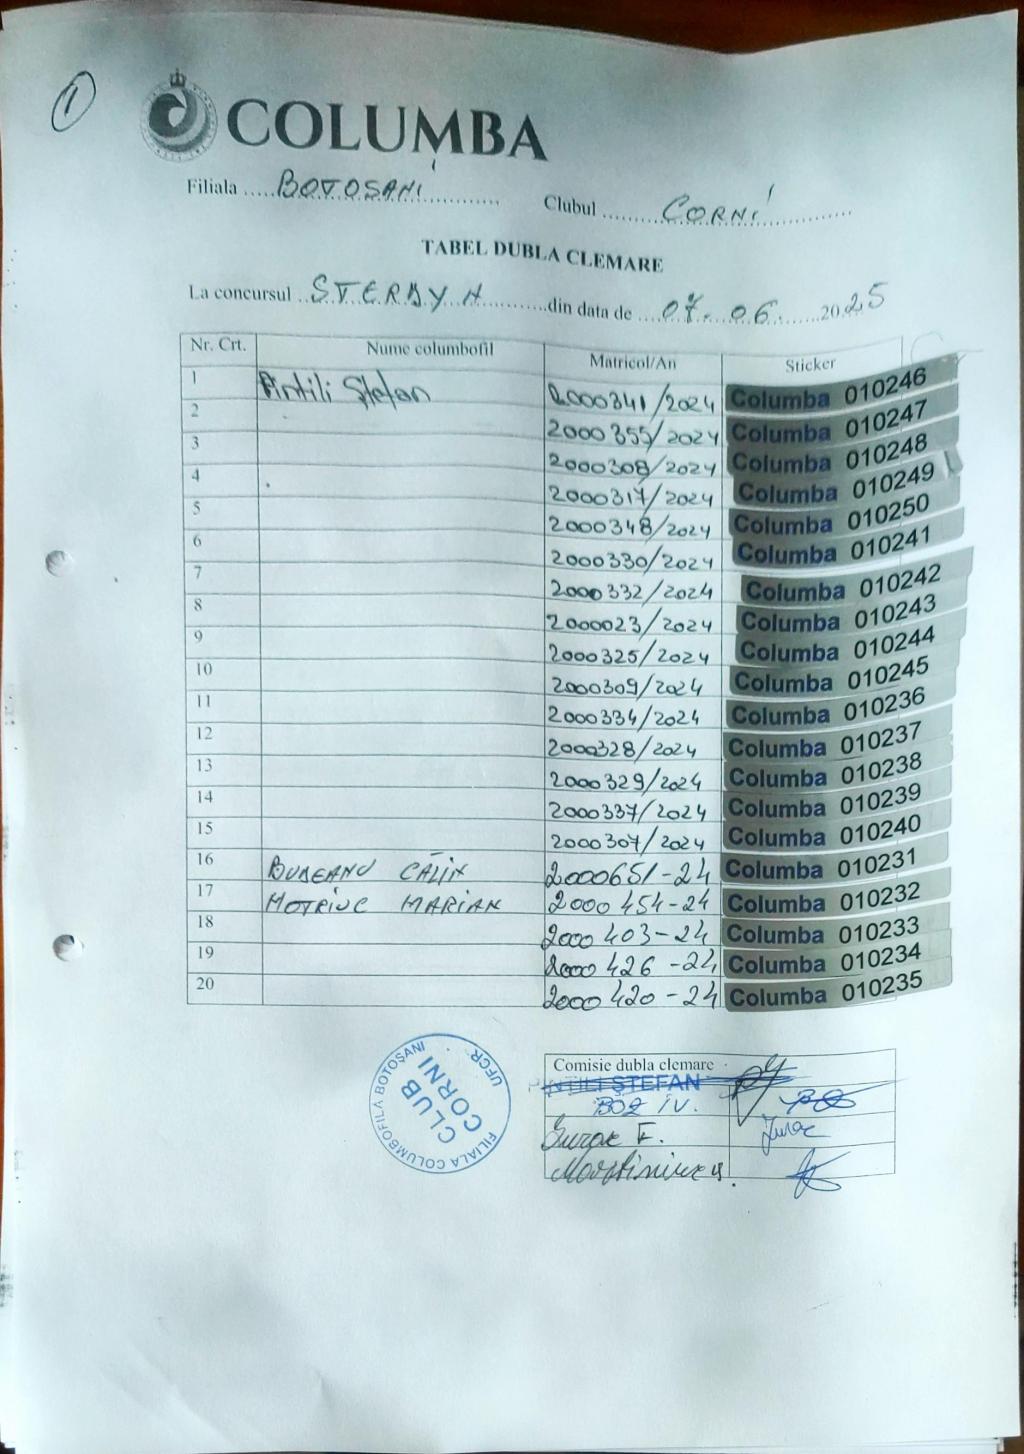 1
COLUMBA
Filiala ..... BOTOSANI ............ Clubul ........... CORNI ............
TABEL DUBLA CLEMARE
La concursul .. STERDYN ........... din data de .... 07. 06. ...... 20.25
Nr. Crt. Nume columbofil Matricol/An Sticker
1 Pintili Ștefan 2000341/2024 Columba 010246
2 2000355/2024 Columba 010247
3 2000308/2024 Columba 010248
4 2000317/2024 Columba 010249
5 2000348/2024 Columba 010250
6 2000330/2024 Columba 010241
7 2000332/2024 Columba 010242
8 2000023/2024 Columba 010243
9 2000325/2024 Columba 010244
10 2000309/2024 Columba 010245
11 2000334/2024 Columba 010236
12 2000328/2024 Columba 010237
13 2000329/2024 Columba 010238
14 2000337/2024 Columba 010239
15 2000307/2024 Columba 010240
16 CĂLIN 2000651-24 Columba 010231
17 MOTRIUC MARIAN 2000454-24 Columba 010232
18 2000403-24 Columba 010233
19 2000426-24 Columba 010234
20 2000420-24 Columba 010235
FILIALA COLUMBOFILA BOTOȘANI
UFCR
CLUB
CORNI
Comisie dubla clemare
PINTILI ȘTEFAN
BOZ IV.
F.